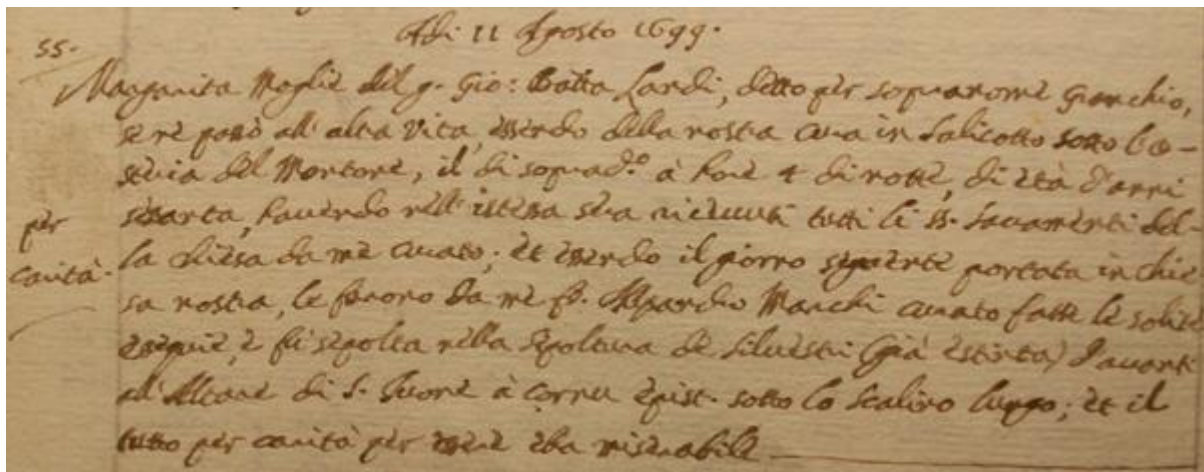 Adi 11 Agosto 1699.
55.
Margarita Moglie del q. Gio: Batta Lardi, detto per sopranome Gianchio,
se ne passò all'altra vita, essendo della nostra cura in Salicotto sotto l'o-
steria del Montone, il di soprad.o à hore 4 di notte, di età d'anni
sessanta, havendo nell'istessa sera ricevuti tutti li SS. Sacramenti del-
per
la Chiesa da me curato; et essendo il giorno seguente portata in Chie
carità.
sa nostra, le furono da me fr. Alpardio Marchi curato fatte le solite
esequie, e fu sepolta nella sepoltura de Silvestri (già estinta) davanti
all'Altare di S. Ivone à cornu Epist. sotto lo scalino lungo; et il
tutto per carità per essere essa miserabile